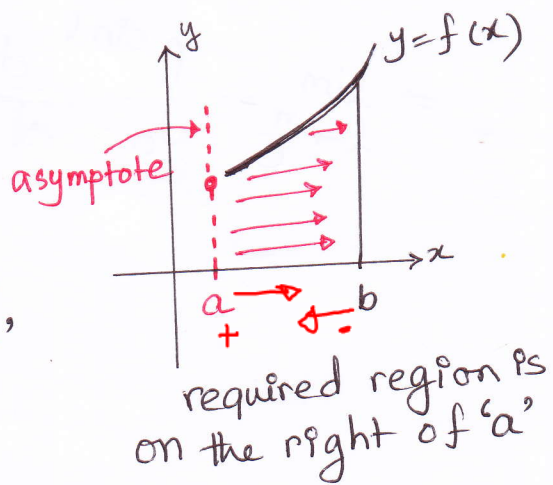 y
y=f(x)
asymptote
x
a
b
+
-
,
required region is
on the right of 'a'